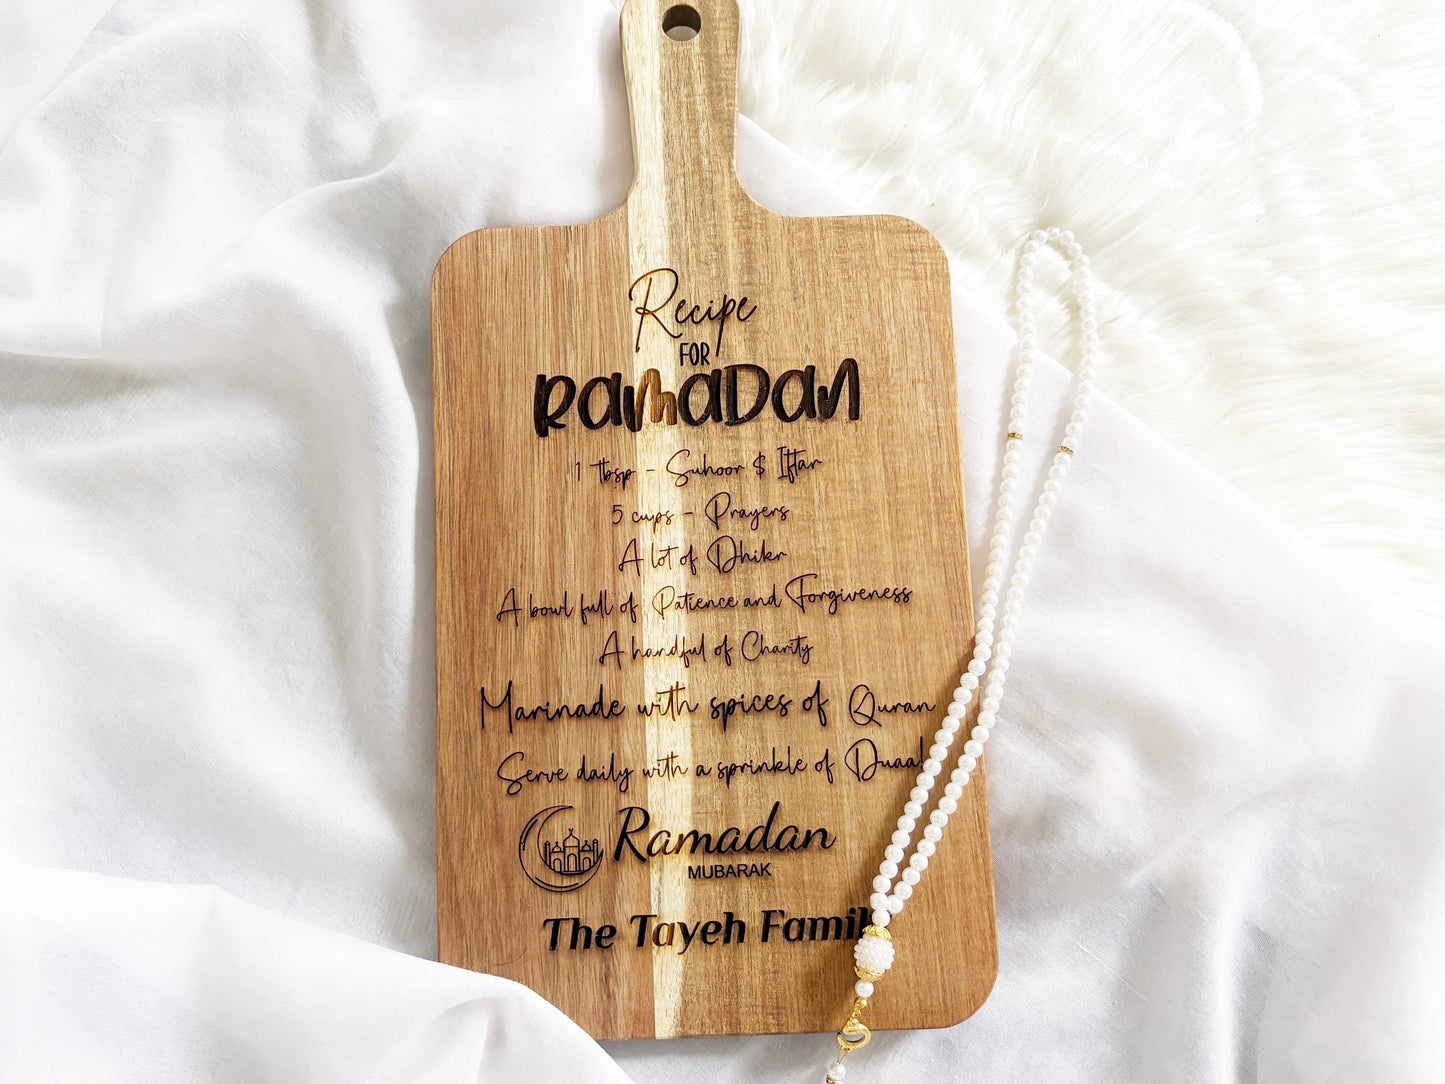 Recipe
FOR
Ramadan
1 tbsp - Suhoor & Iftar
5 cups - Prayers
A lot of Dhikr
A bowl full of Patience and Forgiveness
A handful of Charity
Marinade with spices of Quran
Serve daily with a sprinkle of Duaa!
Ramadan
MUBARAK
The Tayeh Famil